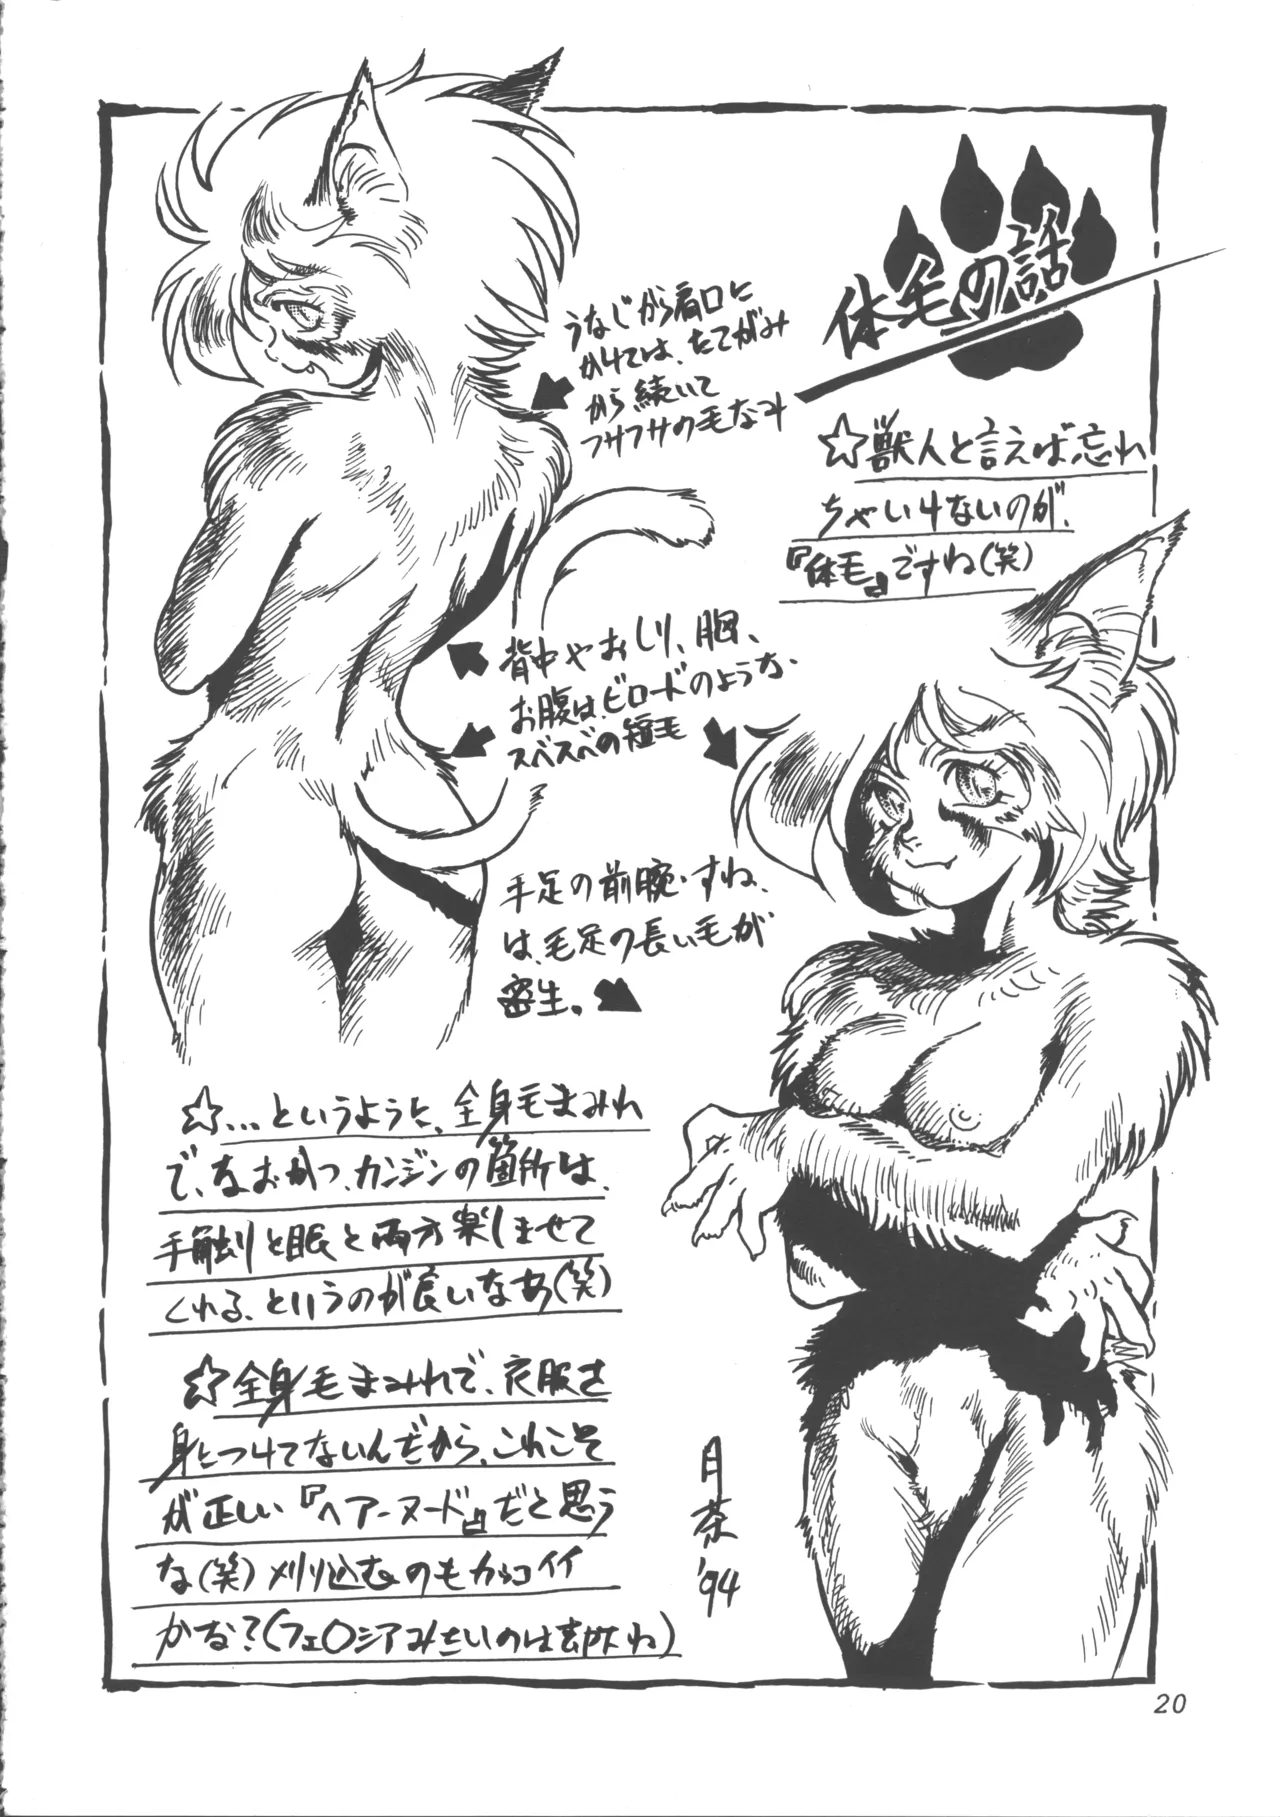 体毛の話
☆獣人と言えば忘れ
ちゃいけないのが、
『体毛』ですね(笑)
うなじから肩口に
かけては、たてがみ
から続いて
フサフサの毛なみ
背中やおしり、胸、
お腹は、ビロードのような
スベスベの短毛
手足の前腕・すね、
は、毛足の長い毛が
密生。
☆…というように、全身毛まみれ
で、なおかつ、カンジンの箇所は、
手触りと眼と両方楽しませて
くれる、というのが良いなあ(笑)
☆全身毛まみれで、衣服を
身につけてないんだから、これこそ
が正しい『ヘアーヌード』だと思う
な(笑)刈り込むのもカッコイイ
かな?(フェ〇シアみたいのは
月茶
'94
20